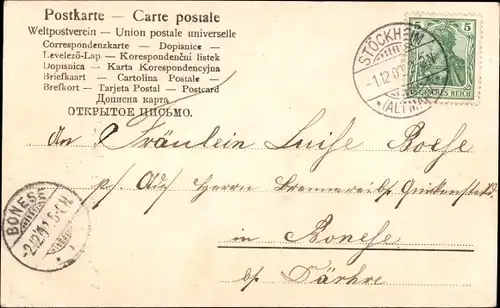 Postkarte — Carte postale
Weltpostverein — Union postale universelle
Correspondenzkarte — Dopisnice —
Levelező-Lap — Korespondenční lístek
Dopisnica — Karta Korespondencyjna
Briefkaart — Cartolina Postale —
Brefkort — Tarjeta Postal — Postcard
Дописна карта
ОТКРЫТОЕ ПИСЬМО.
STÖCKHEIM
(ALTM.)
5
An Fräulein Luise Boese
p/ Adr Herrn
in Bonese
BONESE
b/ Dähre